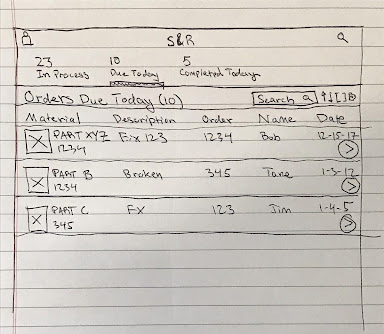 S&R
23 10 5
In Process Due Today Completed Today
Orders Due Today (10) Search
Material Description Order Name Date
PART XYZ Fix 123 1234 Bob 12-15-17
1234
PART B Broken 345 Jane 1-3-12
1234
PART C FX 123 Jim 1-4-5
345